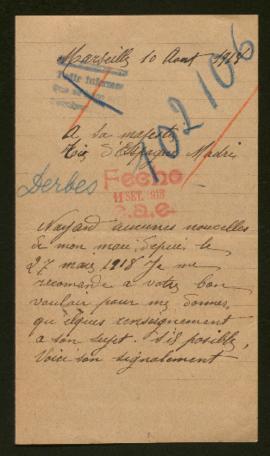 Marseille 10 Aout 1918
702106
A sa majesté
Roi d'Espagne Madri
Derbes
Fecho
11 SET. 1918
Nayard aucunes nouvelles
de mon mari depuis le
27 mais 1918 Je me
recomande a votre bon
vouloir pour me donner
quelques renseignement
a son sujet. Sis posible,
Voici son signalement